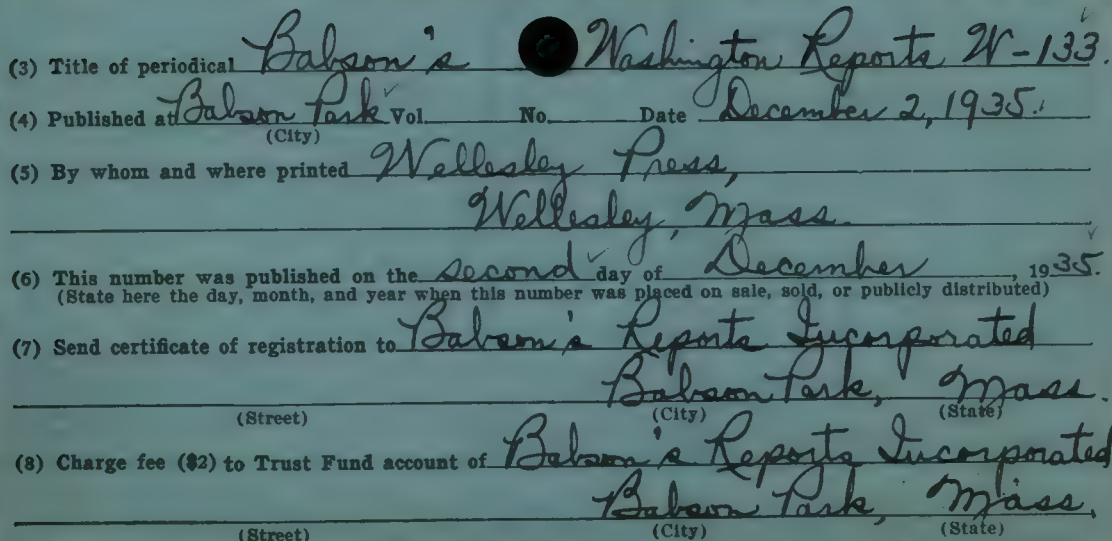 (3) Title of periodical Babson's Washington Reports W-133.
(4) Published at Babson Park Vol. No. Date December 2, 1935.
(City)
(5) By whom and where printed Wellesley Press,
Wellesley, Mass.
(6) This number was published on the second day of December, 1935.
(State here the day, month, and year when this number was placed on sale, sold, or publicly distributed)
(7) Send certificate of registration to Babson's Reports Incorporated
Babson Park, Mass.
(Street) (City) (State)
(8) Charge fee ($2) to Trust Fund account of Babson's Reports Incorporated
Babson Park, Mass.
(Street) (City) (State)